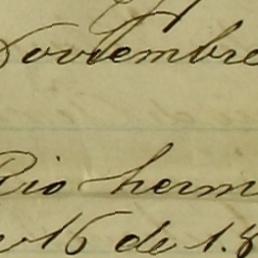 Noviembre
Rio herm
16 de 1.8